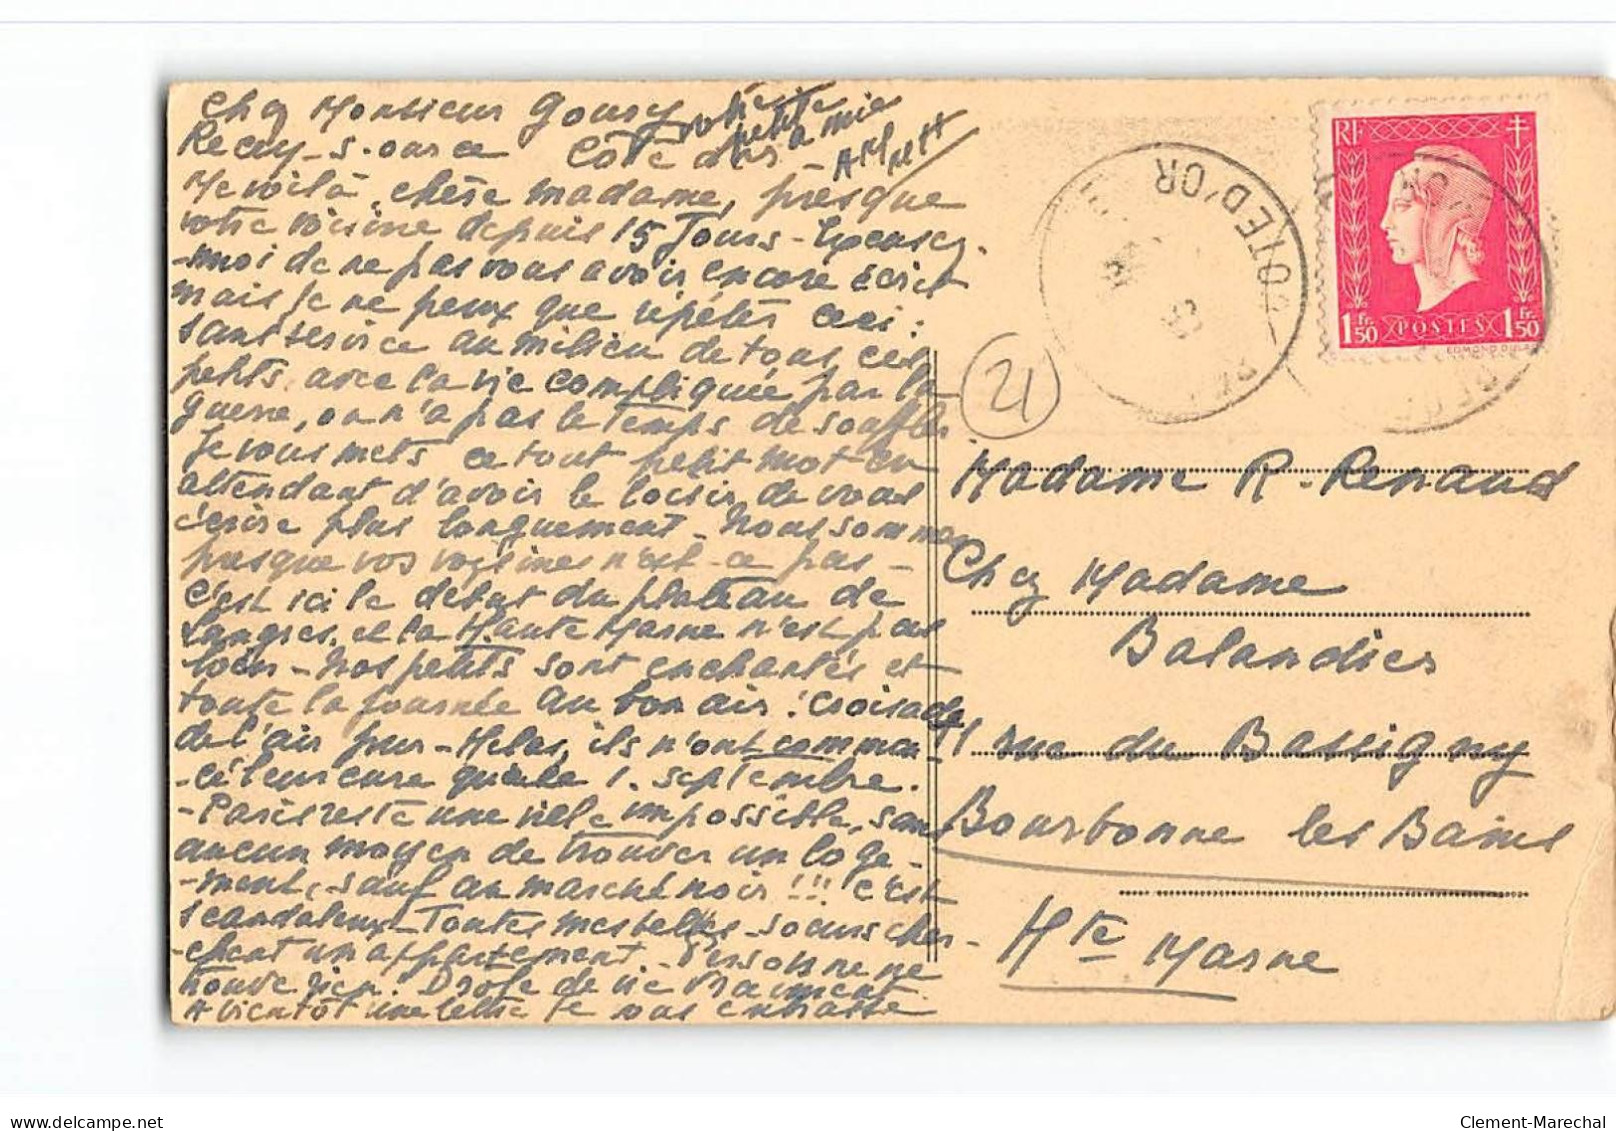 Chez Monsieur Goury
Recey-s-ource Côte d'or
votre petite amie
Me voilà, chère madame, presque
votre voisine depuis 15 Jours - Excusez-
-moi de ne pas vous avoir encore écrit
mais je ne peux que répéter ceci :
sans service au milieu de tous ces
petits, avec la vie compliquée par la
guerre, on n'a pas le temps de souffler
Je vous mets ce tout petit mot en
attendant d'avoir le loisir de vous
écrire plus longuement - Nous sommes
presque vos voisines n'est-ce pas -
C'est ici le début du plateau de
Langres, et la Haute Marne n'est pas
loin - Nos petits sont enchantés et
toute la journée au bon air : Croisade
de l'air pur - Hélas, ils n'ont commen-
-cé leur cure que le 1. septembre.
- Paris reste une ville impossible, sans
aucun moyen de trouver un loge-
-ment, sauf au marché noir !!! C'est
scandaleux - Toutes mes belles-soeurs cher-
-chent un appartement. Personne ne
trouve rien. Drôle de vie vraiment
A bientôt une lettre Je vous embrasse
CÔTE D'OR
RF
1 Fr. 50 POSTES 1 Fr. 50
21
Madame R. Renaud
Chez Madame
Balandier
rue du Bassigny
Bourbonne les Bains
Hte Marne
delcampe.net
Clement-Marechal